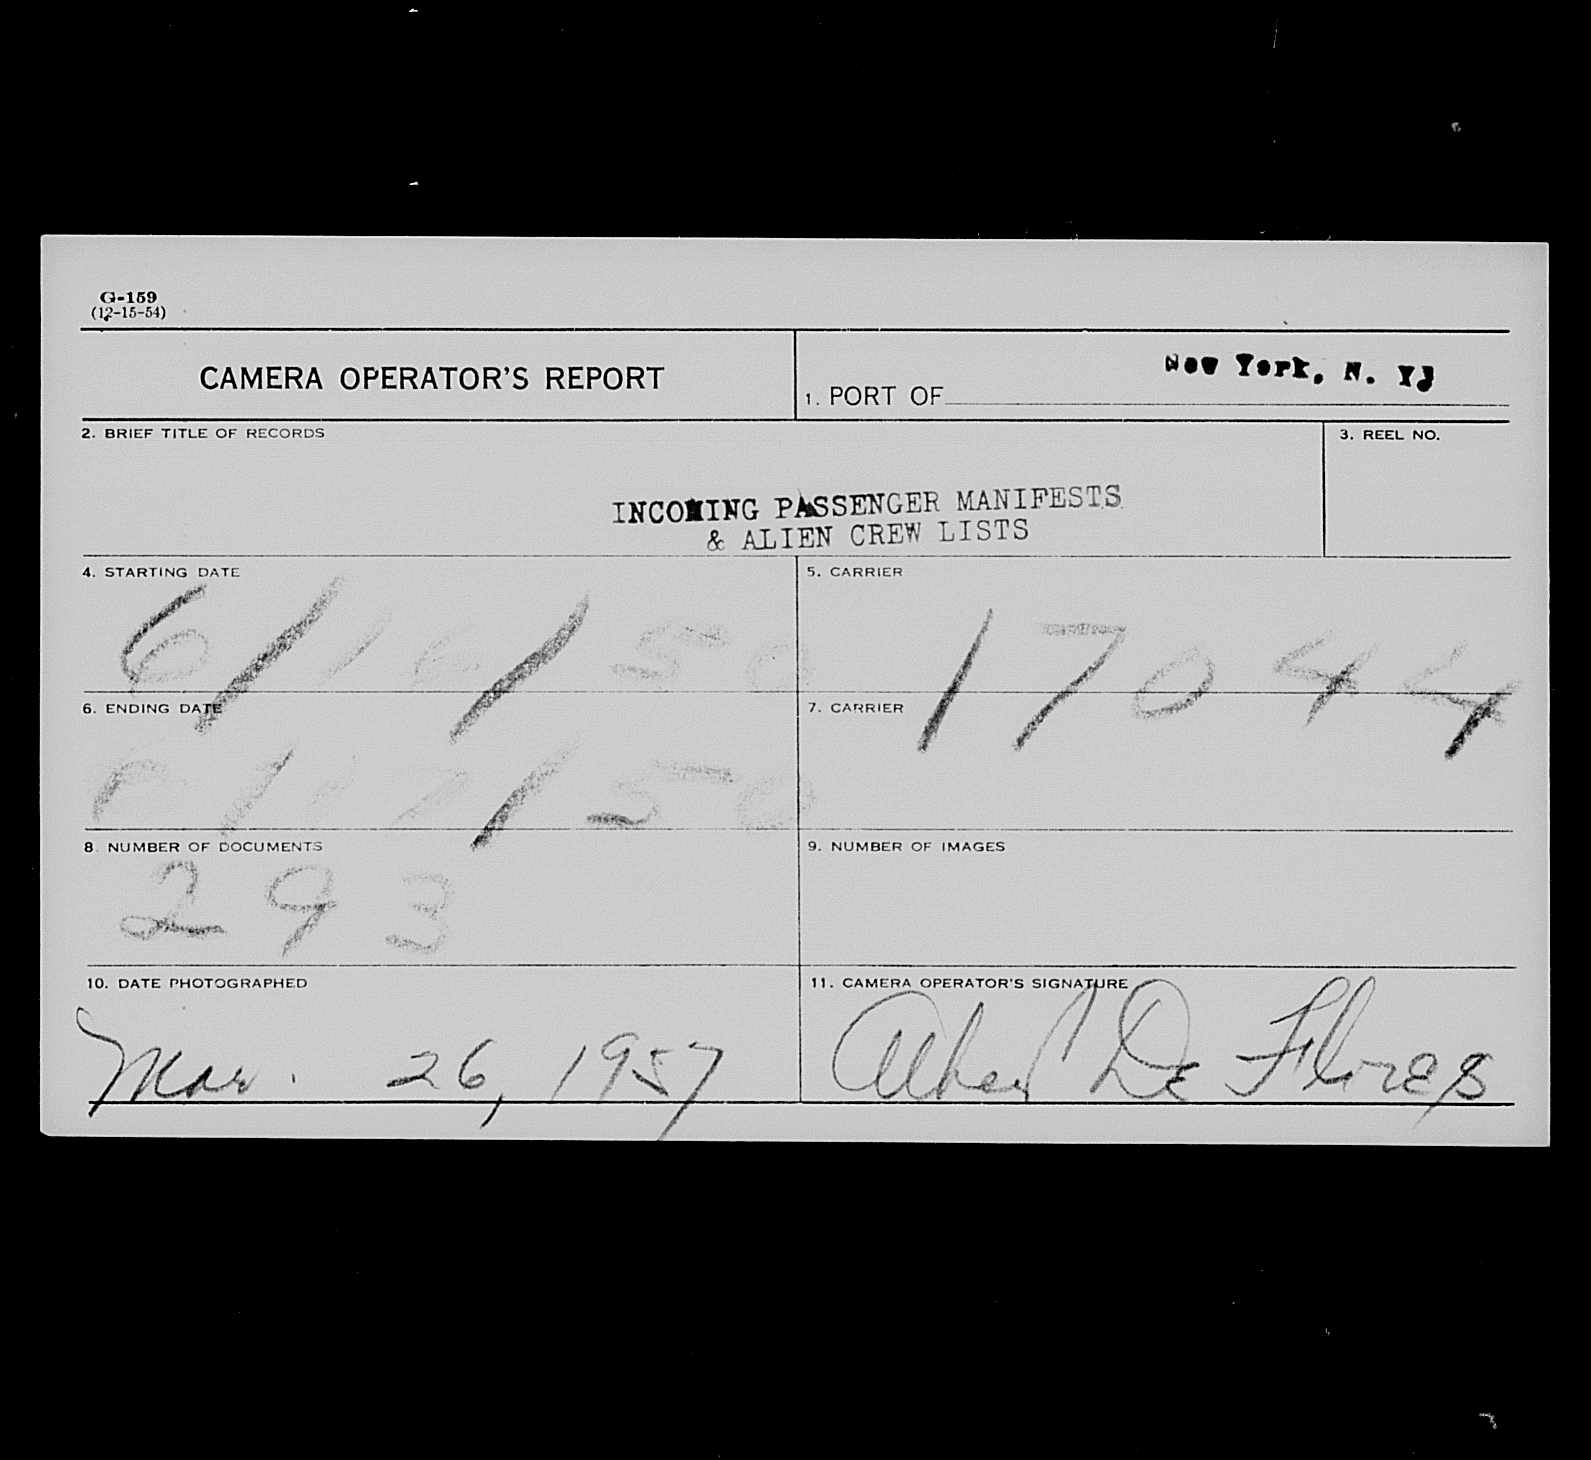 G-159
(12-15-54)
CAMERA OPERATOR'S REPORT
1. PORT OF New York, N. Y.
2. BRIEF TITLE OF RECORDS
3. REEL NO.
INCOMING PASSENGER MANIFESTS
& ALIEN CREW LISTS
4. STARTING DATE
6/16/50
5. CARRIER
17044
6. ENDING DATE
/50
7. CARRIER
8. NUMBER OF DOCUMENTS
293
9. NUMBER OF IMAGES
10. DATE PHOTOGRAPHED
Mar. 26, 1957
11. CAMERA OPERATOR'S SIGNATURE
Albert De Flores